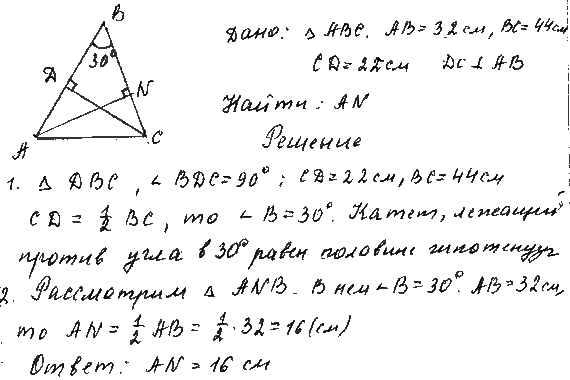 B
30°
D
N
A
C
Дано: Δ ABC. AB = 32 см, BC = 44 см
CD = 22 см DC ⊥ AB
Найти: AN
Решение
1. Δ DBC, ∠ BDC = 90°; CD = 22 см, BC = 44 см
CD = 1/2 BC, то ∠ B = 30°. Катет, лежащий
против угла в 30° равен половине гипотенузы
2. Рассмотрим Δ ANB. В нем ∠ B = 30°. AB = 32 см,
то AN = 1/2 AB = 1/2 · 32 = 16 (см)
Ответ: AN = 16 см